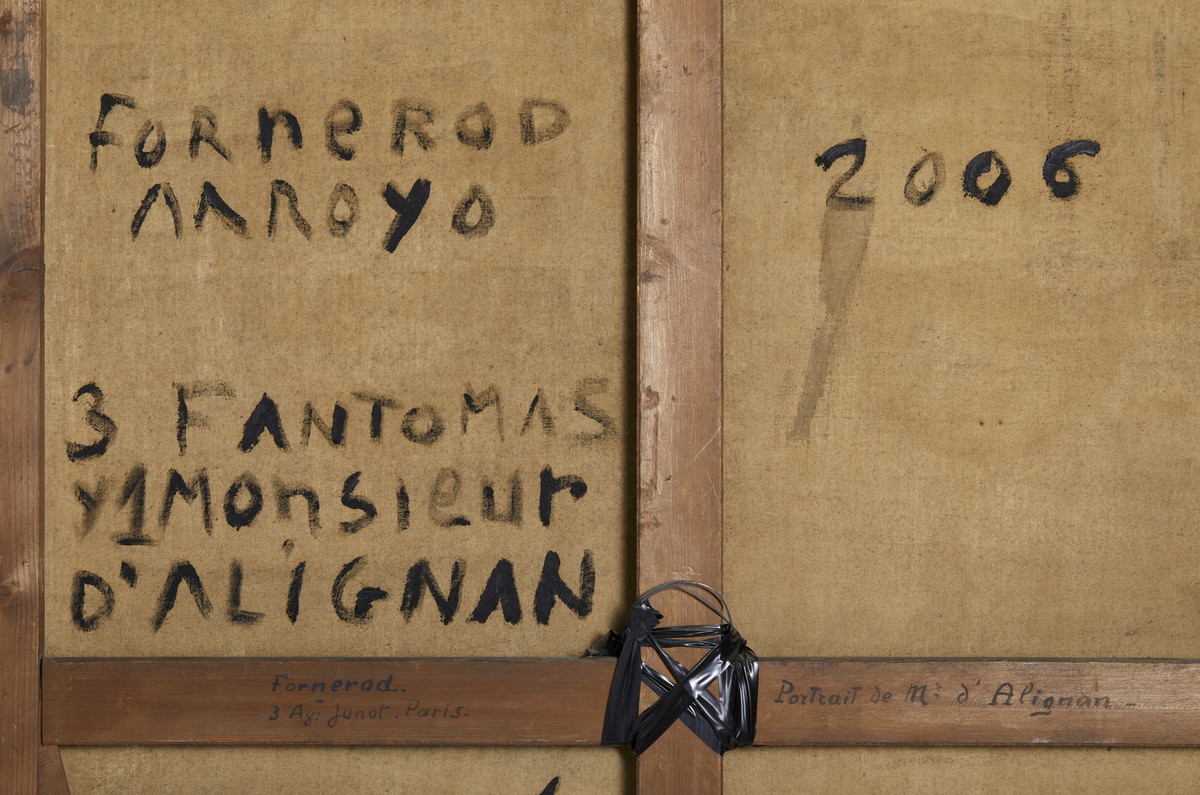 FORneROD
ARROYO
2006
3 FANTOMAS
y 1 Monsieur
D'ALiGNAN
Fornerod.
3 Av: Junot. Paris.
Portrait de Mr d'Alignan